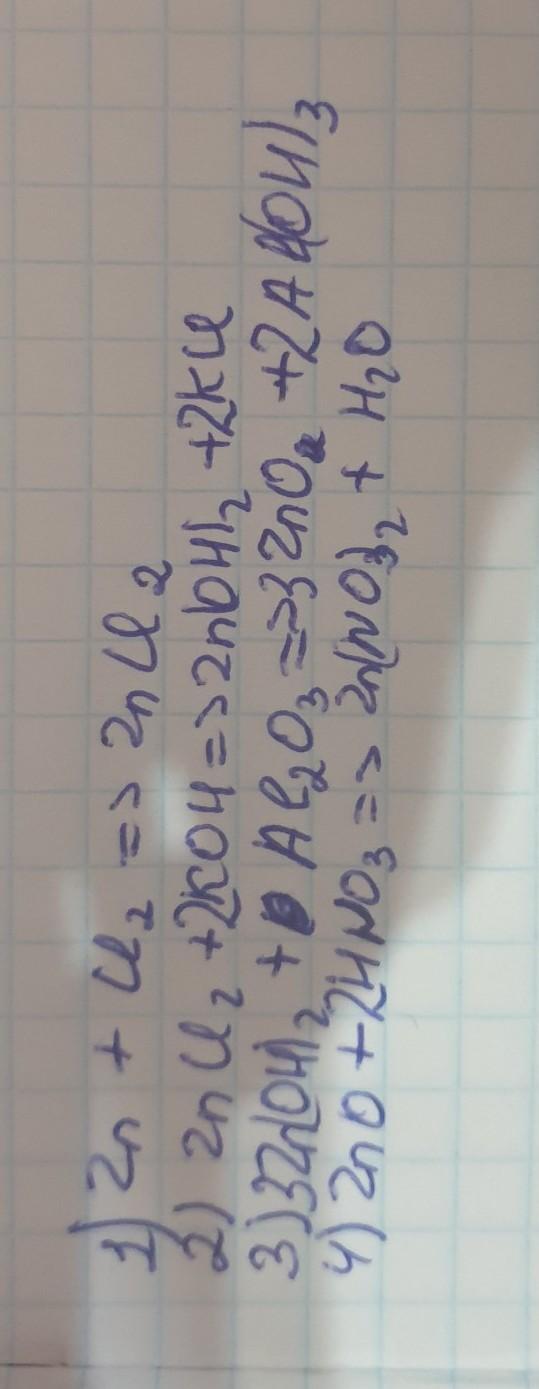 1) Zn + Cl2 => ZnCl2
2) ZnCl2 + 2KOH => Zn(OH)2 + 2KCl
3) 3Zn(OH)2 + Al2O3 => 3ZnO + 2Al(OH)3
4) ZnO + 2HNO3 => Zn(NO3)2 + H2O